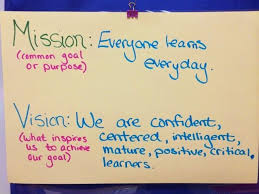 Mission: Everyone learns
(common goal everyday.
or purpose)
Vision: We are confident,
(what inspires centered, intelligent,
us to achieve mature, positive, critical
our goal) learners.